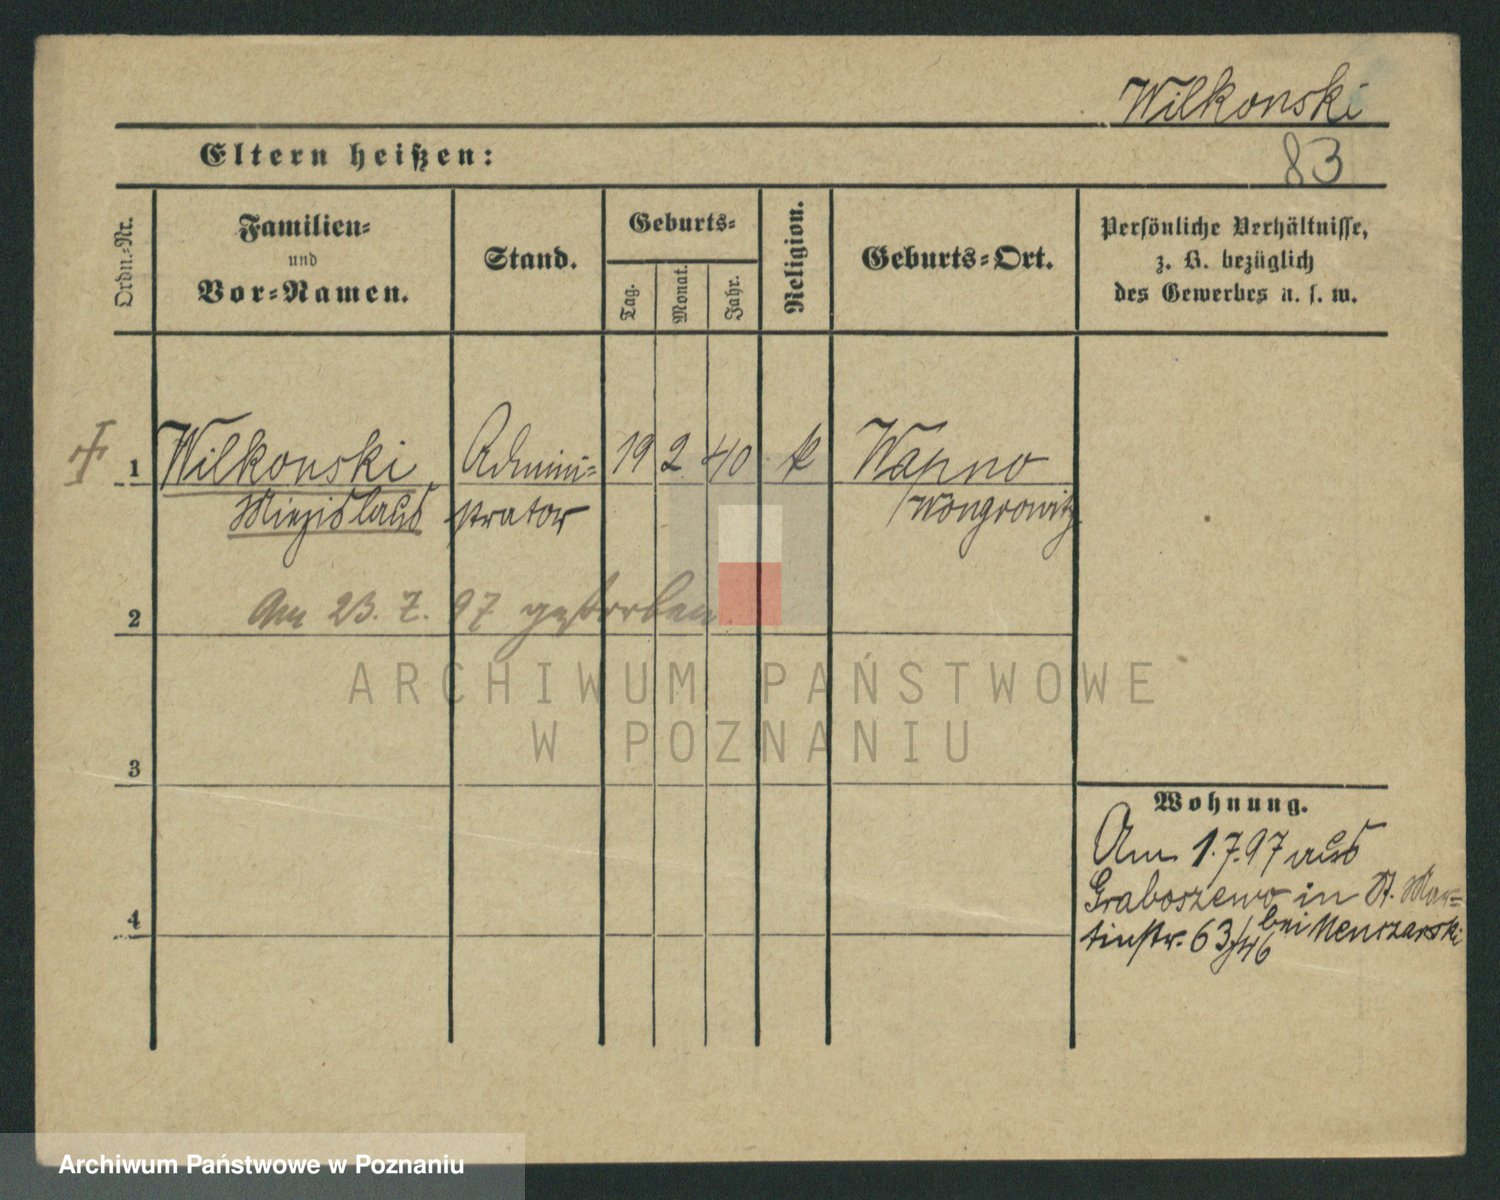 Wilkonski
Eltern heißen:
83
Ordn.-Nr.
Familien-
und
Vor-Namen.
Stand.
Geburts-
Tag.
Monat.
Jahr.
Religion.
Geburts-Ort.
Persönliche Verhältnisse,
z. B. bezüglich
des Gewerbes u. s. w.
1 Wilkonski Admini- 19 2 40 k Wapno
Miezislaus strator /Wongrowitz
2 Am 23. 7. 97 gestorben
ARCHIWUM PAŃSTWOWE
W POZNANIU
3
Wohnung.
Am 1.7.97 aus
Graboszewo in St. Mar-
tinstr. 63/46 bei
4
Archiwum Państwowe w Poznaniu